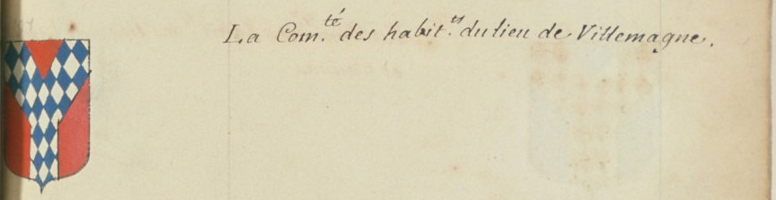 La Com.té des habit.ts du lieu de Villemagne.